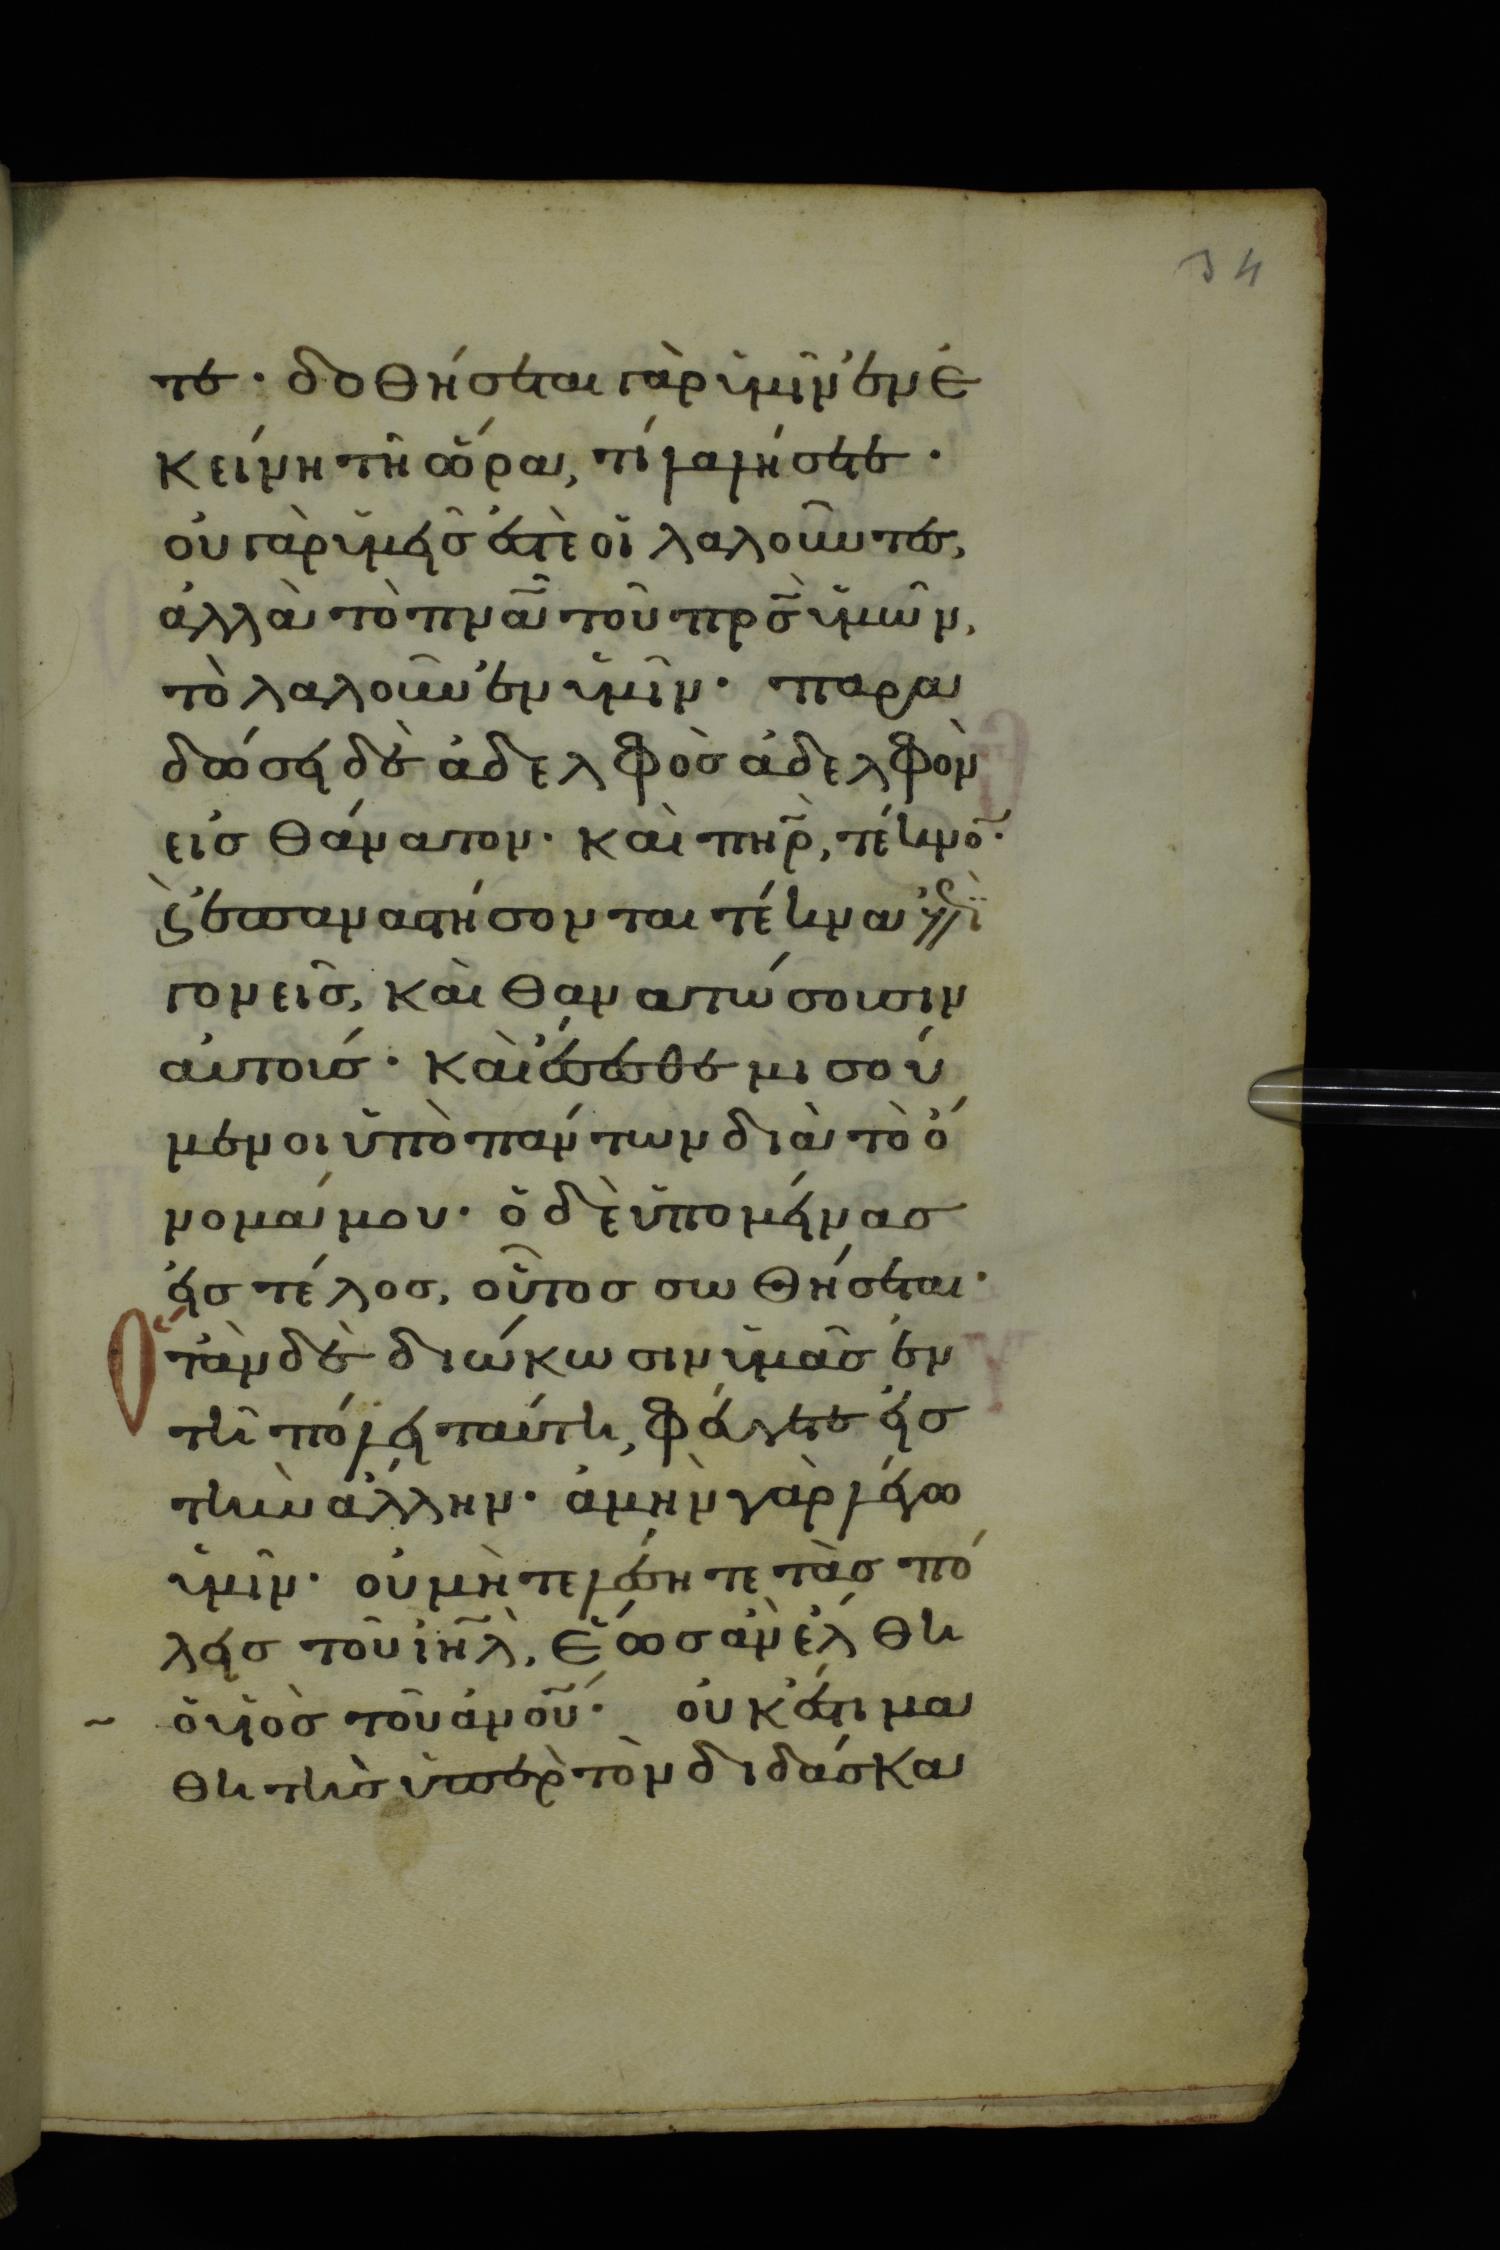 34
τε· δοθήσεται γὰρ ὑμῖν ἐν ἐ
κείνη τῆ ὥρα, τί λαλήσετε·
οὐ γὰρ ὑμεῖς ἐστὲ οἱ λαλοῦντες,
ἀλλὰ τὸ πνᾶ τοῦ πρ̅ς ὑμῶν,
τὸ λαλοῦν ἐν ὑμῖν· παρα
δώσει δὲ ἀδελφὸς ἀδελφὸν
εἰς θάνατον· καὶ πη̅ρ, τέκνο̅·
ϛ̀ ἐπαναστήσονται τέκνα ἐπὶ
γονεῖς, καὶ θανατώσουσιν
αὐτούς· καὶ ἔσεσθε μισού
μενοι ὑπὸ πάντων διὰ τὸ ὄ
νομα μου· ὁ δὲ ὑπομείνας
εἰς τέλος, οὗτος σωθήσεται·
Ὅταν δὲ διώκωσιν ὑμᾶς ἐν
τῆ πόλει ταύτη, φεύγετε εἰς
τὴν ἄλλην· ἀμὴν γὰρ λέγω
ὑμῖν· οὐ μὴ τελέσητε τὰς πό
λεις τοῦ ιη̅λ, ἕως ἂν ἔλθη
ὁ υἱὸς τοῦ ἀνο̅υ· οὐκ ἔστι μα
θητὴς ὑπὲρ τὸν διδάσκα